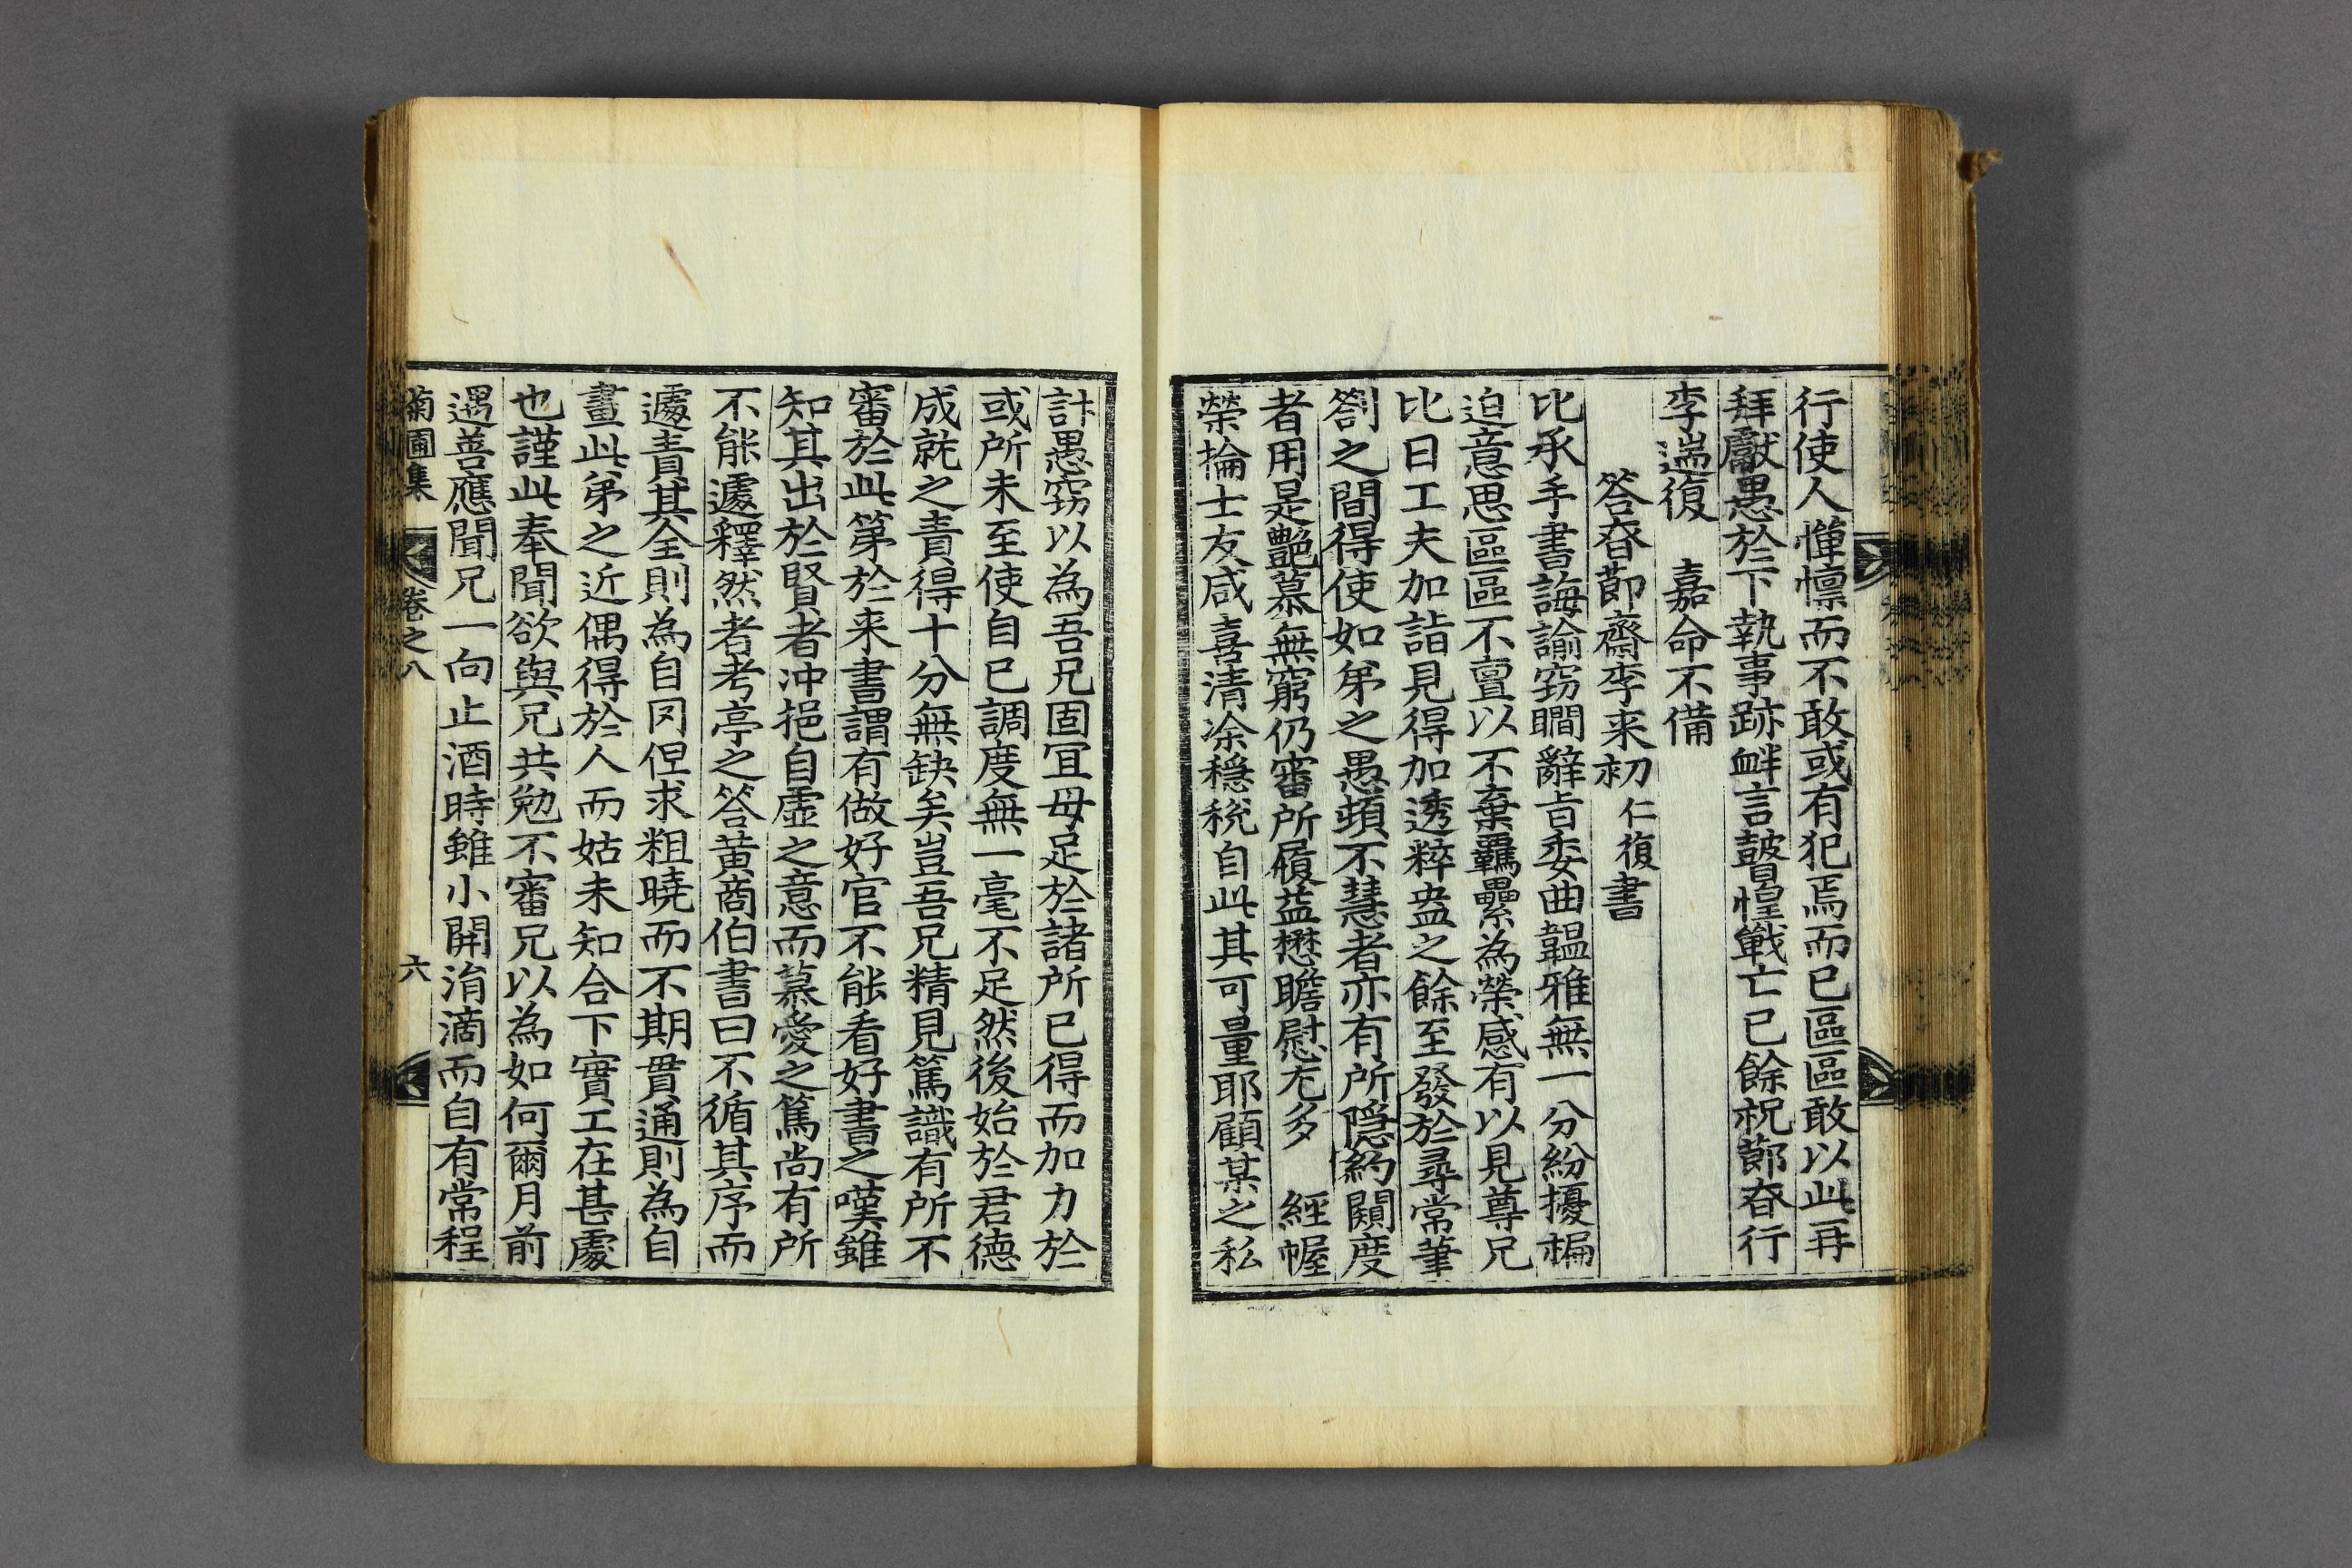 行使人憚懍而不敢或有犯焉而已區區敢以此再
拜獻愚於下執事跡衅言瞽惶戰亡已餘祝節春行
李遄復　嘉命不備
答春節齋李来初仁復書
比承手書誨諭窃瞷辭旨委曲韞雅無一分紛擾褊
迫意思區區不亶以不棄羈纍為榮感有以見尊兄
比日工夫加詣見得加透粹盎之餘至發於尋常筆
劄之間得使如弟之愚蒴不慧者亦有所隐約闚度
者用是艶慕無窮仍審所履益懋瞻慰冞多　經幄
榮掄士友咸喜清凃穏税自此其可量耶顧某之私
計愚窃以為吾兄固冝毋足於諸所已得而加力於
或所未至使自已調度無一毫不足然後始於君德
成就之責得十分無缺矣豈吾兄精見篤識有所不
審於此第於来書謂有做好官不能看好書之嘆雖
知其出於賢者冲挹自虛之意而慕愛之篤尚有所
不能遽釋然者考亭之答黄商伯書曰不循其序而
遽責其全則為自罔但求粗曉而不期貫通則為自
畫此弟之近偶得於人而姑未知合下實工在甚處
也謹此奉聞欲與兄共勉不審兄以為如何爾月前
遇善應聞兄一向止酒時雖小開湏滴而自有常程
菊圃集　卷之八　六